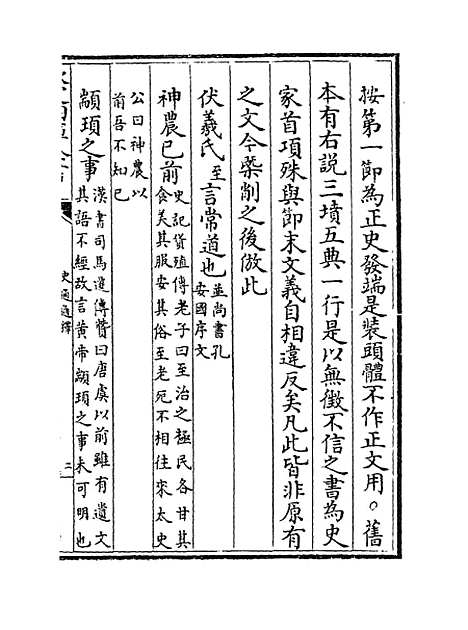 按第一節為正史發端是裝頭體不作正文用。舊
本有右說三墳五典一行是以無徵不信之書為史
家首項殊與節末文義自相違反矣凡此皆非原有
之文今槩削之後倣此
伏羲氏至言常道也並尚書孔安國序文
神農已前史記貨殖傳老子曰至治之極民各甘其食美其服安其俗至老死不相往來太史
公曰神農以前吾不知已
顓頊之事漢書司馬遷傳贊曰唐虞以前雖有遺文其語不經故言黃帝顓頊之事未可明也
史通通釋